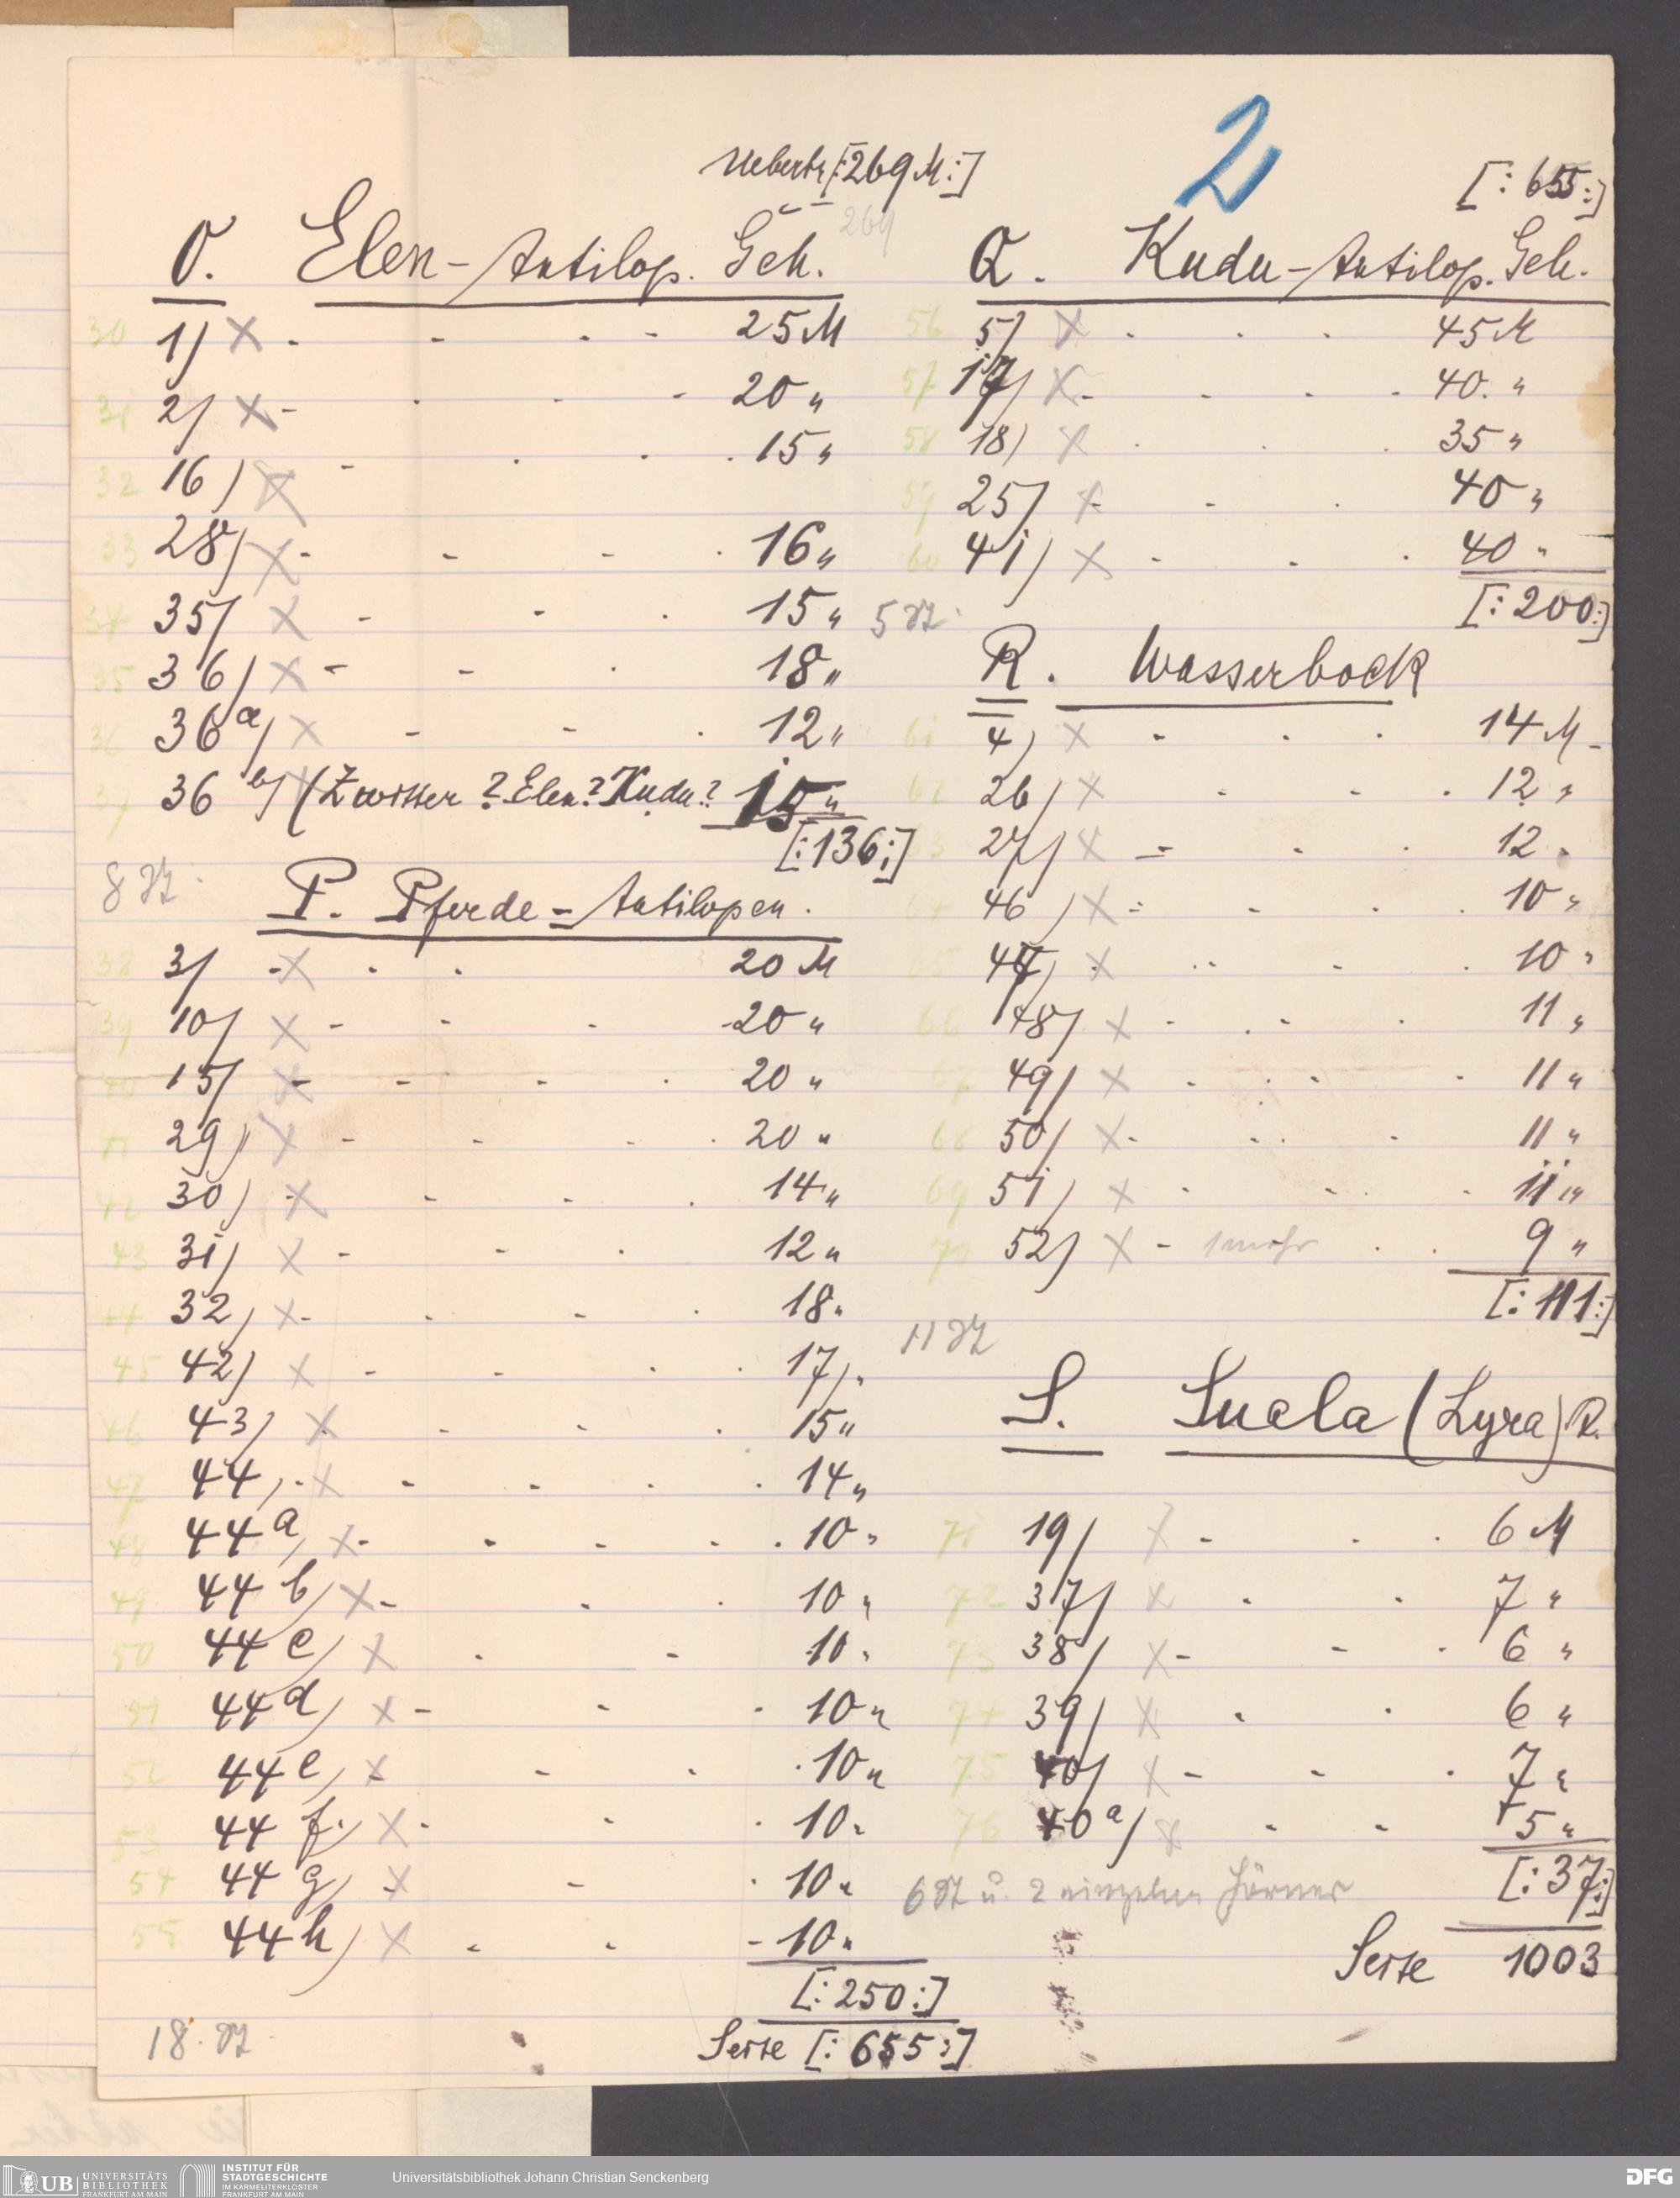 2
Uebertr [:269 M:]
269
O. Elen-Antilop. Geh.
30 1) X 25 M
31 2) X 20 "
32 16) X 15 "
33 28) X 16 "
34 35) X 15 "
35 36) X 18 "
36 36 a) X 12 "
37 36 b) (Zwitter? Elen? Kudu? 15 "
[:136:]
8 St.
P. Pferde-Antilopen.
38 3) X 20 M
39 10) X 20 "
40 15) X 20 "
41 29) X 20 "
42 30) X 14 "
43 31) X 12 "
44 32) X 18 "
45 42) X 17 "
46 43) X 15 "
47 44) X 14 "
48 44 a) X 10 "
49 44 b) X 10 "
50 44 c) X 10 "
51 44 d) X 10 "
52 44 e) X 10 "
53 44 f.) X 10 "
54 44 g) X 10 "
55 44 h) X 10 "
[:250:]
18. St.
Seite [:655:]
[:655:]
Q. Kudu-Antilop. Geh.
56 5) X 45 M
57 17) X 40. "
58 18) X 35 "
59 25) X 40 "
60 41) X 40 "
[:200:]
5 St.
R. Wasserbock
61 4) X 14 M
62 26) X 12 "
63 27) X 12 "
64 46) X 10 "
65 47) X 10 "
66 48) X 11 "
67 49) X 11 "
68 50) X 11 "
69 51) X 11 "
70 52) X 9 "
[:111:]
11 St
S. Suala (Lyra) A.
71 19) X 6 M
72 37) X 7 "
73 38) X 6 "
74 39) X 6 "
75 40) X 7 "
76 40 a) X 5 "
[:37:]
6 St u. 2 einzelne Hörner
Seite 1003
UB UNIVERSITÄTS BIBLIOTHEK FRANKFURT AM MAIN
INSTITUT FÜR STADTGESCHICHTE IM KARMELITERKLOSTER FRANKFURT AM MAIN
Universitätsbibliothek Johann Christian Senckenberg
DFG